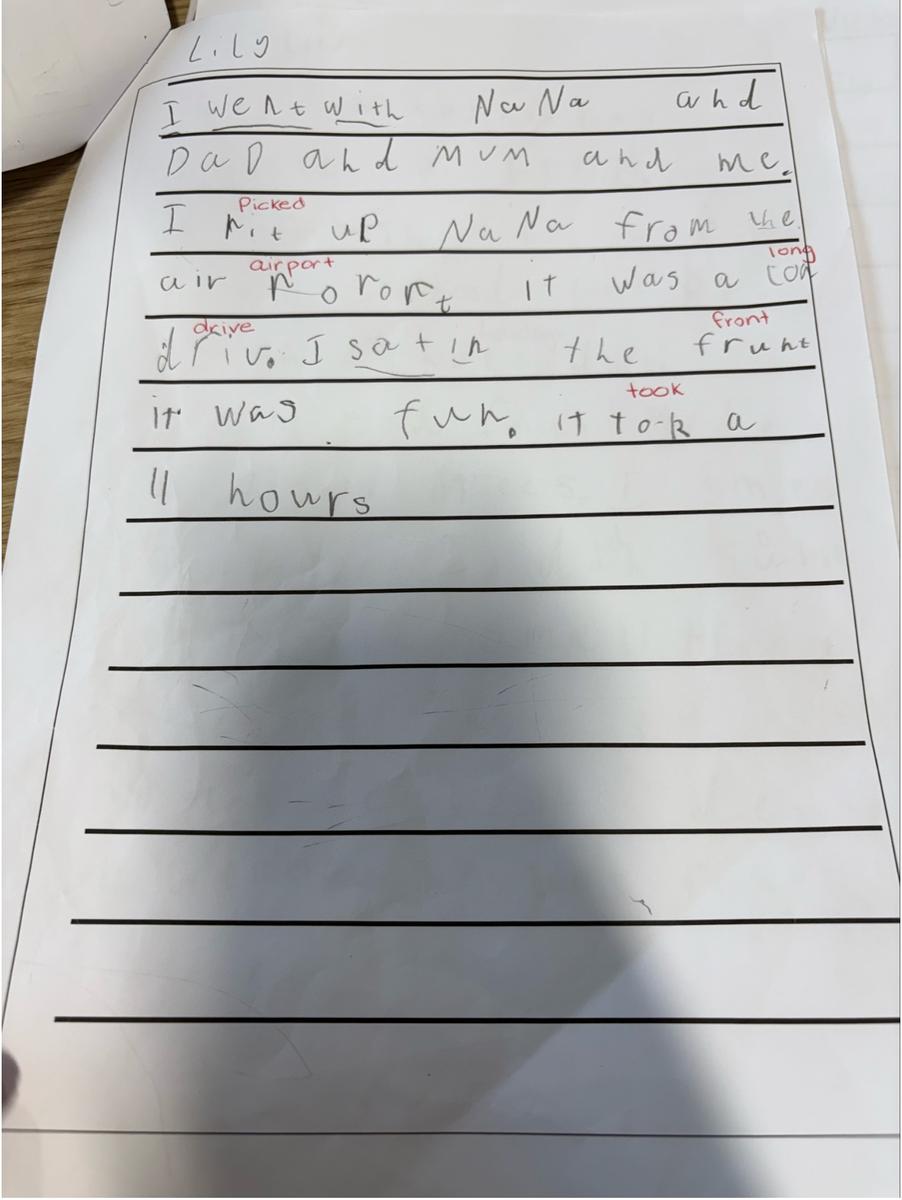 Lily
I went with NaNa and
DaD and MUM and me.
Picked
I pit up NaNa from the
airport long
air it was a
drive front
driv. I sat in the frunt
took
it was fun. it tok a
11 hours